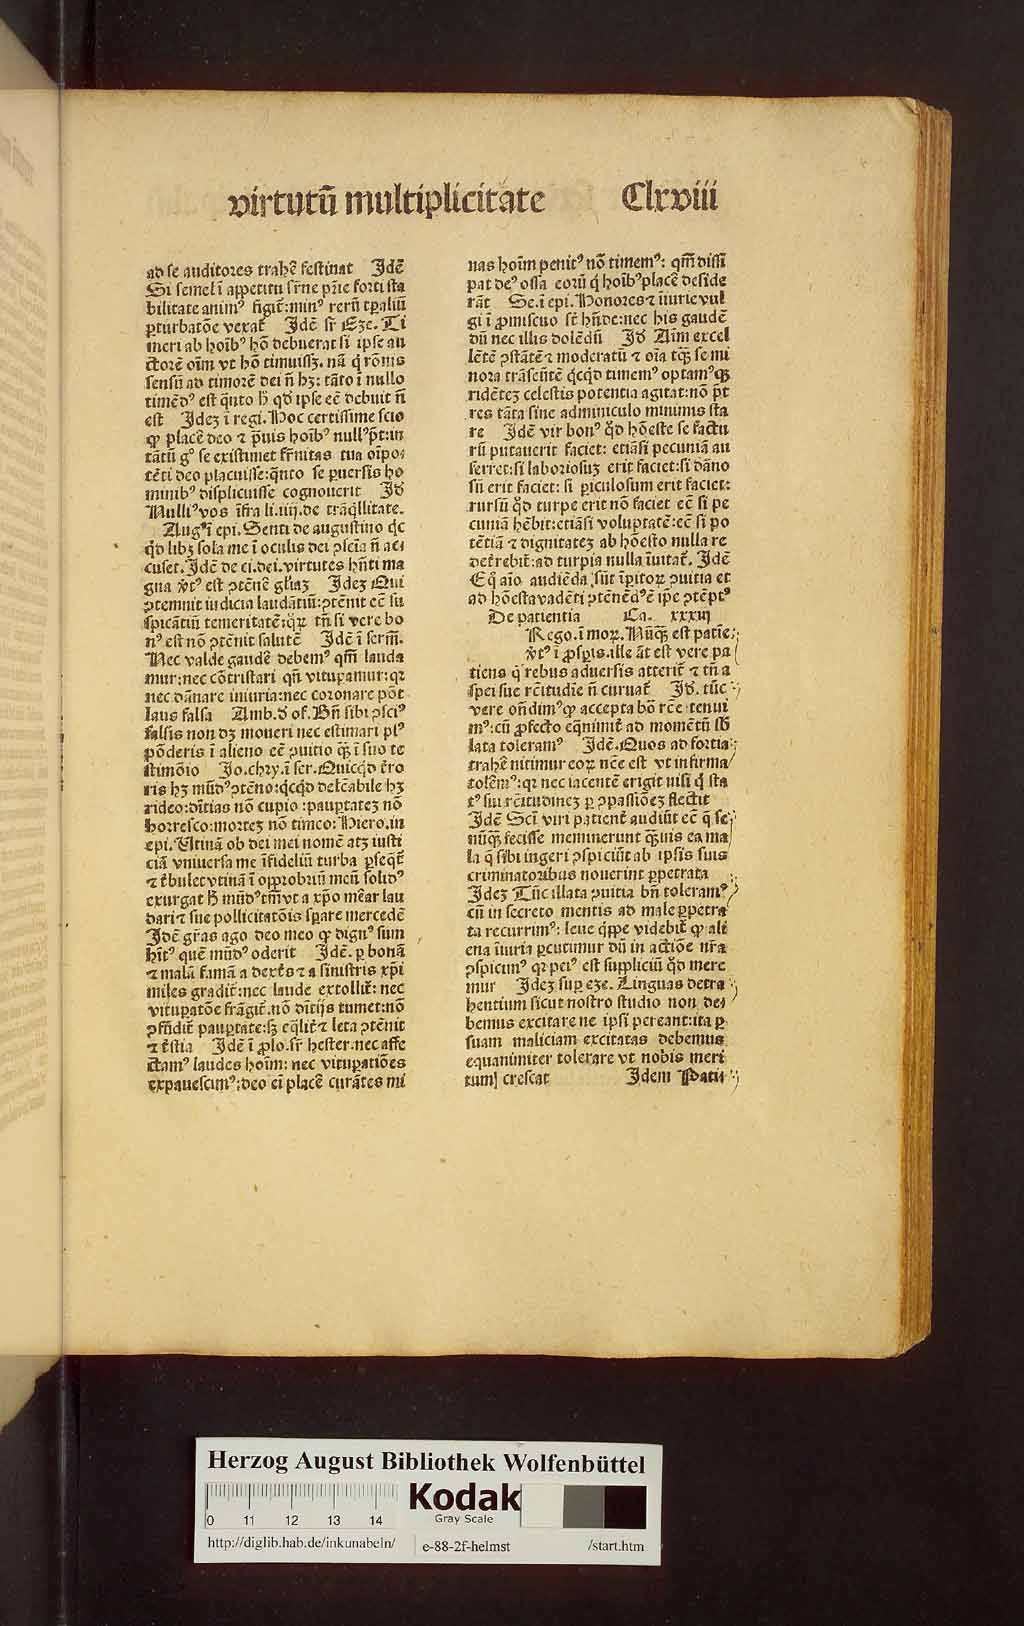 virtutū multiplicitate Clxviii
ad se auditores trahẽ festinat Jdẽ
Si semel ĩ appetitu sr̃ne pr̃ie forti sta
bilitate animꝰ figit̃:minꝰ rerũ tp̃aliũ
ꝑturbatõe vexat̃ Jdẽ sr̃ Eze. Ti
meri ab hoĩbꝰ hõ debuerat si ipse au
ctorẽ oĩm vt hõ timuissʒ. nã q̃ rõnis
sensũ ad timorẽ dei ñ hʒ: tãto ĩ nullo
timẽdꝰ est q̃nto h̃ qd̃ ipse eẽ debuit ñ
est Jdeʒ ĩ regi. Hoc certissime scio
ꝙ placẽ deo ⁊ p̃uis hoĩbꝰ nullꝰ p̃t:in
tãtũ gᵒ se existimet fr̃nitas tua oĩpo⸗
tẽti deo placuisse:q̃nto se ꝑuersis ho
minibꝰ displicuisse cognouerit Jđ
Nulliꝰ vos ĩfra li.iiij.de trãq̃llitate.
Augꝰ ĩ epi. Senti de augustino q̃c
q̃d libʒ sola me ĩ oculis dei ꝯsciã ñ ac⸗
cuset. Jdẽ de ci.dei.virtutes hñti ma
gna v̾tꝰ est ꝯtẽnẽ gl̃iaʒ Jdeʒ Qui
ꝯtemnit iudicia laudãtiũ:ꝯtẽnit eẽ su
spicãtiũ temeritatẽ:q̃ꝝ tñ si vere bo
nꝰ est nõ ꝯtẽnit salutẽ Jdẽ ĩ serm̃.
Nec valde gaudẽ debemꝰ qm̃ lauda
mur:nec cõtristari qñ vituꝑamur:qꝛ
nec dãnare iniuria:nec coronare põt
laus falsa Amb.đ of. Bñ sibi ꝯsciꝰ
falsis non dʒ moueri nec estimari plꝰ
põderis ĩ alieno eẽ ꝯuitio q̃ʒ ĩ suo te
stimõio Jo.chry.ĩ ser. Quicq̃d t̾ro
ris hʒ mũdꝰ ꝯtẽno:q̃cq̃d delc̾abile hʒ
rideo:diĩtias nõ cupio :pauꝑtateʒ nõ
horresco:morteʒ nõ timeo: Hiero.in
epi. Utinã ob dei mei nomẽ atʒ iusti
ciã vniuersa me ĩfideliũ turba ꝑseq̃t̃
⁊ t̾bulet vtinã ĩ opprobriũ meũ solidꝰ
exurgat h̃ mũdꝰ tm̃ vt a xp̃o mẽar lau
dari ⁊ sue pollicitatõis sꝑare mercedẽ
Jdẽ gr̃as ago deo meo ꝙ dignꝰ sum
hñtꝰ quẽ mũdꝰ oderit Jdẽ. ꝑ bonã
⁊ malã famã a dext̾s ⁊ a sinistris xp̃i
miles gradit̃: nec laude extollit̃: nec
vituꝑatõe frãgit̃.nõ diĩtijs tumet:nõ
ꝯfũdit̃ pauꝑtate:sʒ eq̃lit̾ ⁊ leta ꝯtẽnit
⁊ t̾stia Jdẽ ĩ ꝓlo.sr̃ hester.nec affe
ctamꝰ laudes hoĩm: nec vituꝑatiões
expauescimꝰ:deo eĩ placẽ curãtes mi
nas hoĩm penitꝰ nõ timemꝰ: qm̃ dissi
pat deꝰ ossa eorũ q̃ hoĩbꝰ placẽ deside
rãt Se.ĩ epi. Honores ⁊ iiurie vul
gi ĩ ꝓmiscuo st̃ hñde:nec his gaudẽ
dũ nec illis dolẽdũ Jđ Aĩm excel
lẽtẽ ꝯstãtẽ ⁊ moderatũ ⁊ oĩa tq̃ʒ se mi
nora trãseũtẽ q̃cq̃d timemꝰ optamꝰqʒ
ridẽteʒ celestis potentia agitat:nõ p̃t
res tãta sine adminiculo numinis sta
re Jdẽ vir bonꝰ q̃d hõeste se factu
rũ putauerit faciet: etiãsi pecuniã au
ferret:si laboriosuʒ erit faciet:si dãno
sũ erit faciet: si ꝑiculosum erit faciet:
rursũ q̃d turpe erit nõ faciet eẽ si pe
cuniã hẽbit:etiãsi voluptatẽ:eẽ si po
tẽtiã ⁊ dignitateʒ ab hõesto nulla re
det̾rebit̃:ad turpia nulla ĩuitat̃. Jdẽ
Eq̃ aĩo audiẽda sũt ĩꝑitoꝝ ꝯuitia et
ad hõesta vadẽti ꝯtẽnẽdꝰ ẽ ip̃e ꝯtẽptꝰ
De patientia Ca. xxxiij
Rego.ĩ moꝝ. Nũq̃ʒ est patiẽ⸗
v̾tꝰ ĩ ꝓsꝑis.ille aũt est vere pa
tiens q̃ rebus aduersis atterit̃ ⁊ tñ a
spei sue rc̃itudĩe ñ curuat̃ Jđ. tũc
vere oñdimꝰ ꝙ accepta bõ rc̃e tenui
mꝰ:cũ ꝓfecto eq̃nimit̾ ad momẽtũ sb̾
lata toleramꝰ Jdẽ. Quos ad fortia
trahẽ nitimur eoꝝ nc̃e est vt infirma
tolem̾ꝰ:qꝛ nec iacentẽ erigit nisi q̃ sta
tꝰ sui rc̃itudineʒ ꝑ ꝯpassiõeʒ flectit
Jdẽ Scĩ viri patient̾ audiũt eẽ q̃ se
nũq̃ʒ fecisse meminerunt q̃ʒuis ea ma
la q̃ sibi ingeri ꝯspiciũt ab ipsis suis
criminatoribus nouerint ꝑpetrata
Jdeʒ Tũc illata ꝯuitia bñ toleramꝰ
cũ in secreto mentis ad male ꝑpetra
ta recurrimꝰ: leue q̃ppe videbit̃ ꝙ ali
ena ĩiuria ꝑcutimur dũ in actiõe nr̃a
ꝯspicimꝰ qꝛ peiꝰ est suppliciũ q̃d mere
mur Jdeʒ suꝑ eze. Linguas detra
hentium sicut nostro studio non de⸗
bemus excitare ne ipsi pereant:ita ꝑ
suam maliciam excitatas debemus
equanimiter tolerare vt nobis meri
tum crescat Jdem Patii
Herzog August Bibliothek Wolfenbüttel
0 11 12 13 14
Kodak
Gray Scale
http://diglib.hab.de/inkunabeln/ e-88-2f-helmst /start.htm